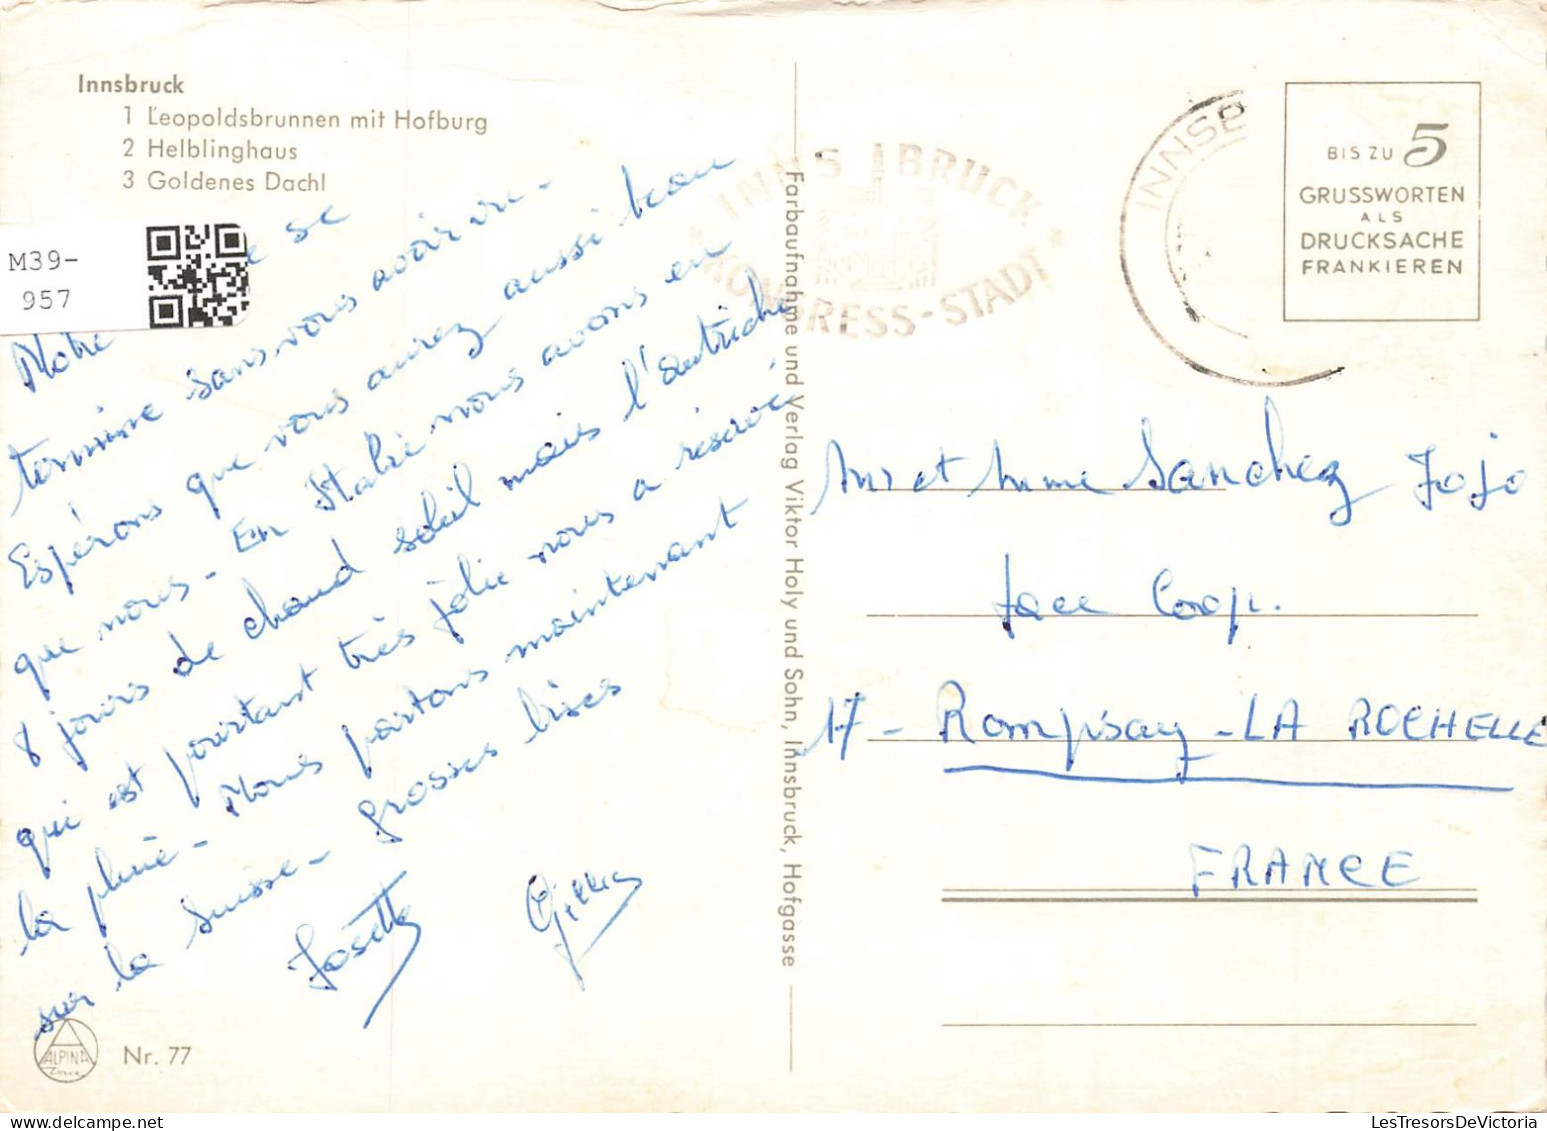 Innsbruck
1 Leopoldsbrunnen mit Hofburg
2 Helblinghaus
3 Goldenes Dachl
M39-
957
Notre se
termine sans vous avoir vu -
Espérons que vous aurez aussi beau
que nous - En Italie nous avons eu
8 jours de chaud soleil mais l'autriche
qui est pourtant très jolie nous a réservé
la pluie - Nous partons maintenant
sur la Suisse - grosses bises
Josette Gilles
ALPINA
Druck
Nr. 77
Farbaufnahme und Verlag Viktor Holy und Sohn, Innsbruck, Hofgasse
INNSBRUCK
KONGRESS-STADT
INNSB
BIS ZU 5
GRUSSWORTEN
ALS
DRUCKSACHE
FRANKIEREN
Mr et Mme Sanchez Jojo
face Coop.
17 - Rompsay - LA ROCHELLE
FRANCE
LesTresorsDeVictoria.com